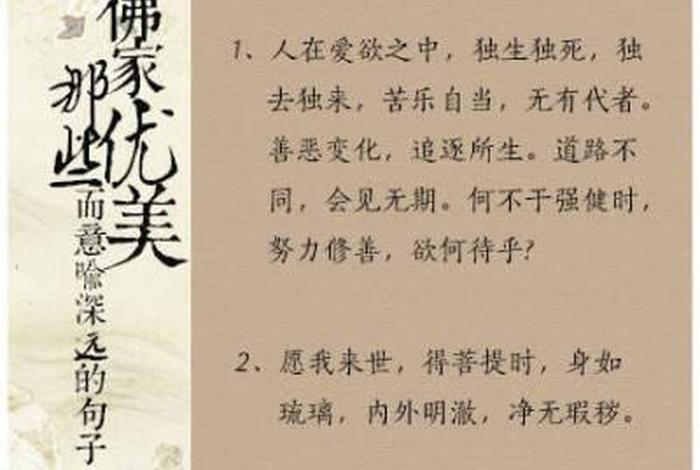 佛家
那些优美
而意喻深远的句子
1、人在爱欲之中，独生独死，独
去独来，苦乐自当，无有代者。
善恶变化，追逐所生。道路不
同，会见无期。何不于强健时，
努力修善，欲何待乎?
2、愿我来世，得菩提时，身如
琉璃，内外明澈，净无瑕秽。